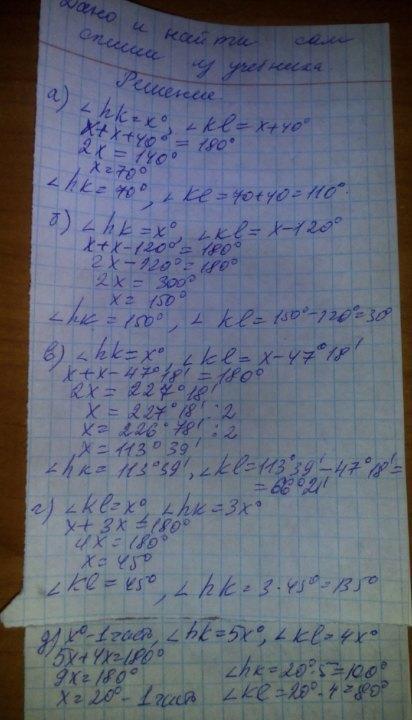 Дано и найти сам
спиши из учебника.
Решение.
а) ∠hk=x°, ∠kl=x+40°
x+x+40°=180°
2x=140°
x=70°
∠hk=70°, ∠kl=70+40=110°.
б) ∠hk=x°, ∠kl=x-120°
x+x-120°=180°
2x-120°=180°
2x=300°
x=150°
∠hk=150°, ∠kl=150°-120°=30°
в) ∠hk=x°, ∠kl=x-47°18'
x+x-47°18'=180°
2x=227°18'
x=227°18':2
x=226°78':2
x=113°39'
∠hk=113°39', ∠kl=113°39'-47°18'=
=66°21'
г) ∠kl=x°, ∠hk=3x°
x+3x=180°
4x=180°
x=45°
∠kl=45°, ∠hk=3·45°=135°
д) x°-1 часть, ∠hk=5x°, ∠kl=4x°
5x+4x=180°
9x=180° ∠hk=20°·5=100°
x=20°-1 часть ∠kl=20°·4=80°